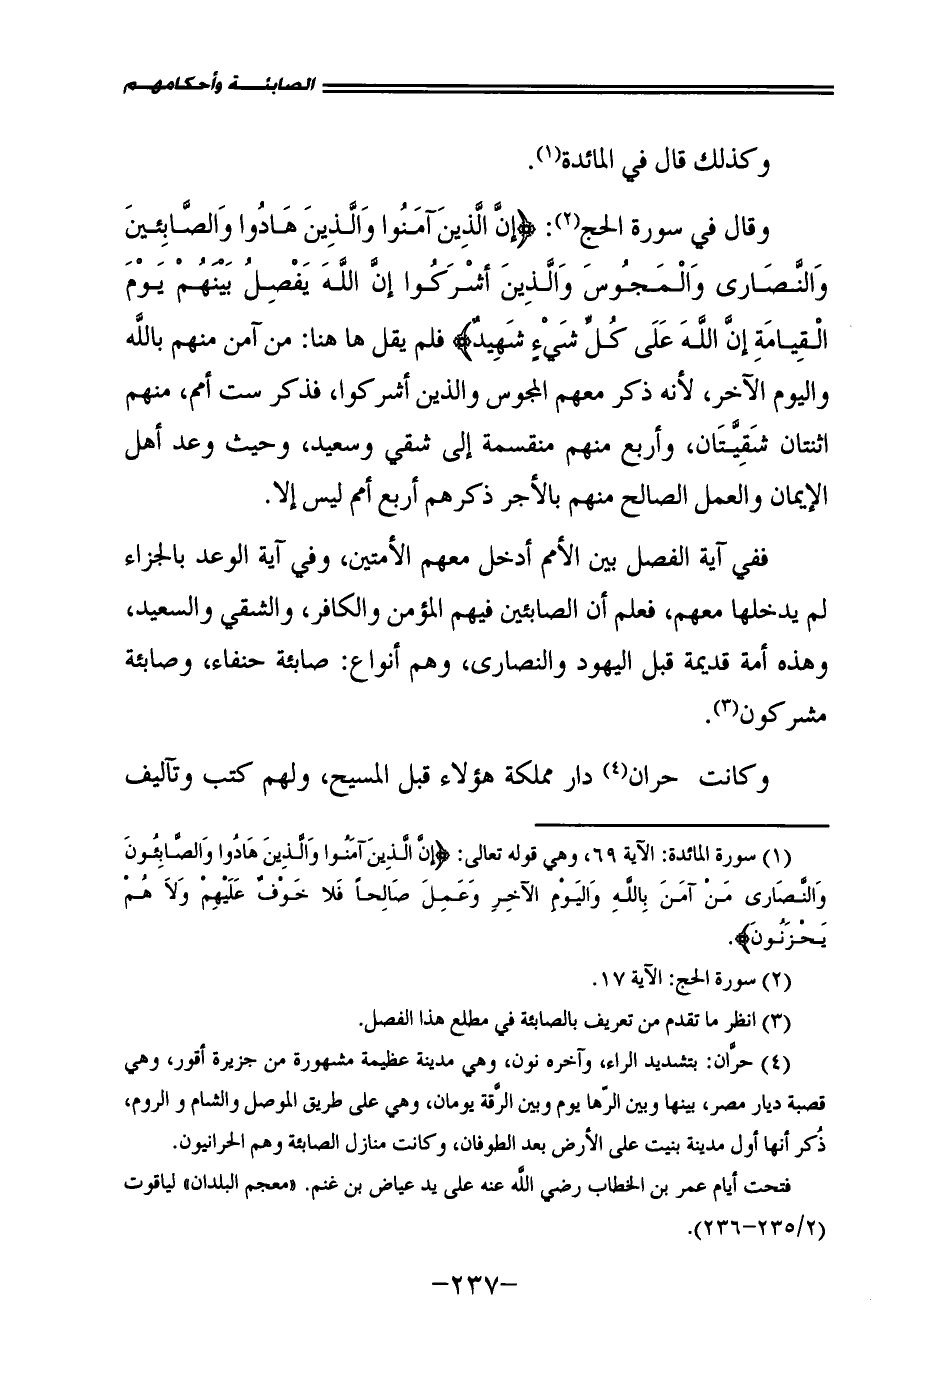 الصابئــة وأحكامهــم
وكذلك قال في المائدة(١).
وقال في سورة الحج(٢): ﴿إنَّ الَّذِينَ آمَنُوا وَالَّذِينَ هَادُوا وَالصَّابِئِينَ
وَالنَّصَارى وَالْمَجُوسَ وَالَّذِينَ أشْرَكُوا إنَّ اللَّهَ يَفْصِلُ بَيْنَهُمْ يَوْمَ
الْقِيامَةِ إنَّ اللَّهَ عَلَى كُلِّ شَيْءٍ شَهِيدٌ﴾ فلم يقل ها هنا: من آمن منهم بالله
واليوم الآخر، لأنه ذكر معهم المجوس والذين أشركوا، فذكر ست أمم، منهم
اثنتان شَقِيَّتَان، وأربع منهم منقسمة إلى شقي وسعيد، وحيث وعد أهل
الإيمان والعمل الصالح منهم بالأجر ذكرهم أربع أمم ليس إلا.
ففي آية الفصل بين الأمم أدخل معهم الأمتين، وفي آية الوعد بالجزاء
لم يدخلها معهم، فعلم أن الصابئين فيهم المؤمن والكافر، والشقي والسعيد،
وهذه أمة قديمة قبل اليهود والنصارى، وهم أنواع: صابئة حنفاء، وصابئة
مشركون(٣).
وكانت حران(٤) دار مملكة هؤلاء قبل المسيح، ولهم كتب وتآليف
(١) سورة المائدة: الآية ٦٩، وهي قوله تعالى: ﴿إنَّ الَّذِينَ آمَنُوا وَالَّذِينَ هَادُوا وَالصَّابِئُونَ
وَالنَّصَارى مَنْ آمَنَ بِاللَّهِ وَاليَوْمِ الآخِرِ وَعَمِلَ صَالِحاً فَلا خَوْفٌ عَلَيْهِمْ وَلَا هُمْ
يَحْزَنُونَ﴾.
(٢) سورة الحج: الآية ١٧.
(٣) انظر ما تقدم من تعريف بالصابئة في مطلع هذا الفصل.
(٤) حرَّان: بتشديد الراء، وآخره نون، وهي مدينة عظيمة مشهورة من جزيرة أقور، وهي
قصبة ديار مصر، بينها وبين الرّها يوم وبين الرَّقة يومان، وهي على طريق الموصل والشام و الروم،
ذُكر أنها أول مدينة بنيت على الأرض بعد الطوفان، وكانت منازل الصابئة وهم الحرانيون.
فتحت أيام عمر بن الخطاب رضي الله عنه على يد عياض بن غنم. «معجم البلدان» لياقوت
(٢/ ٢٣٥-٢٣٦).
-٢٣٧-